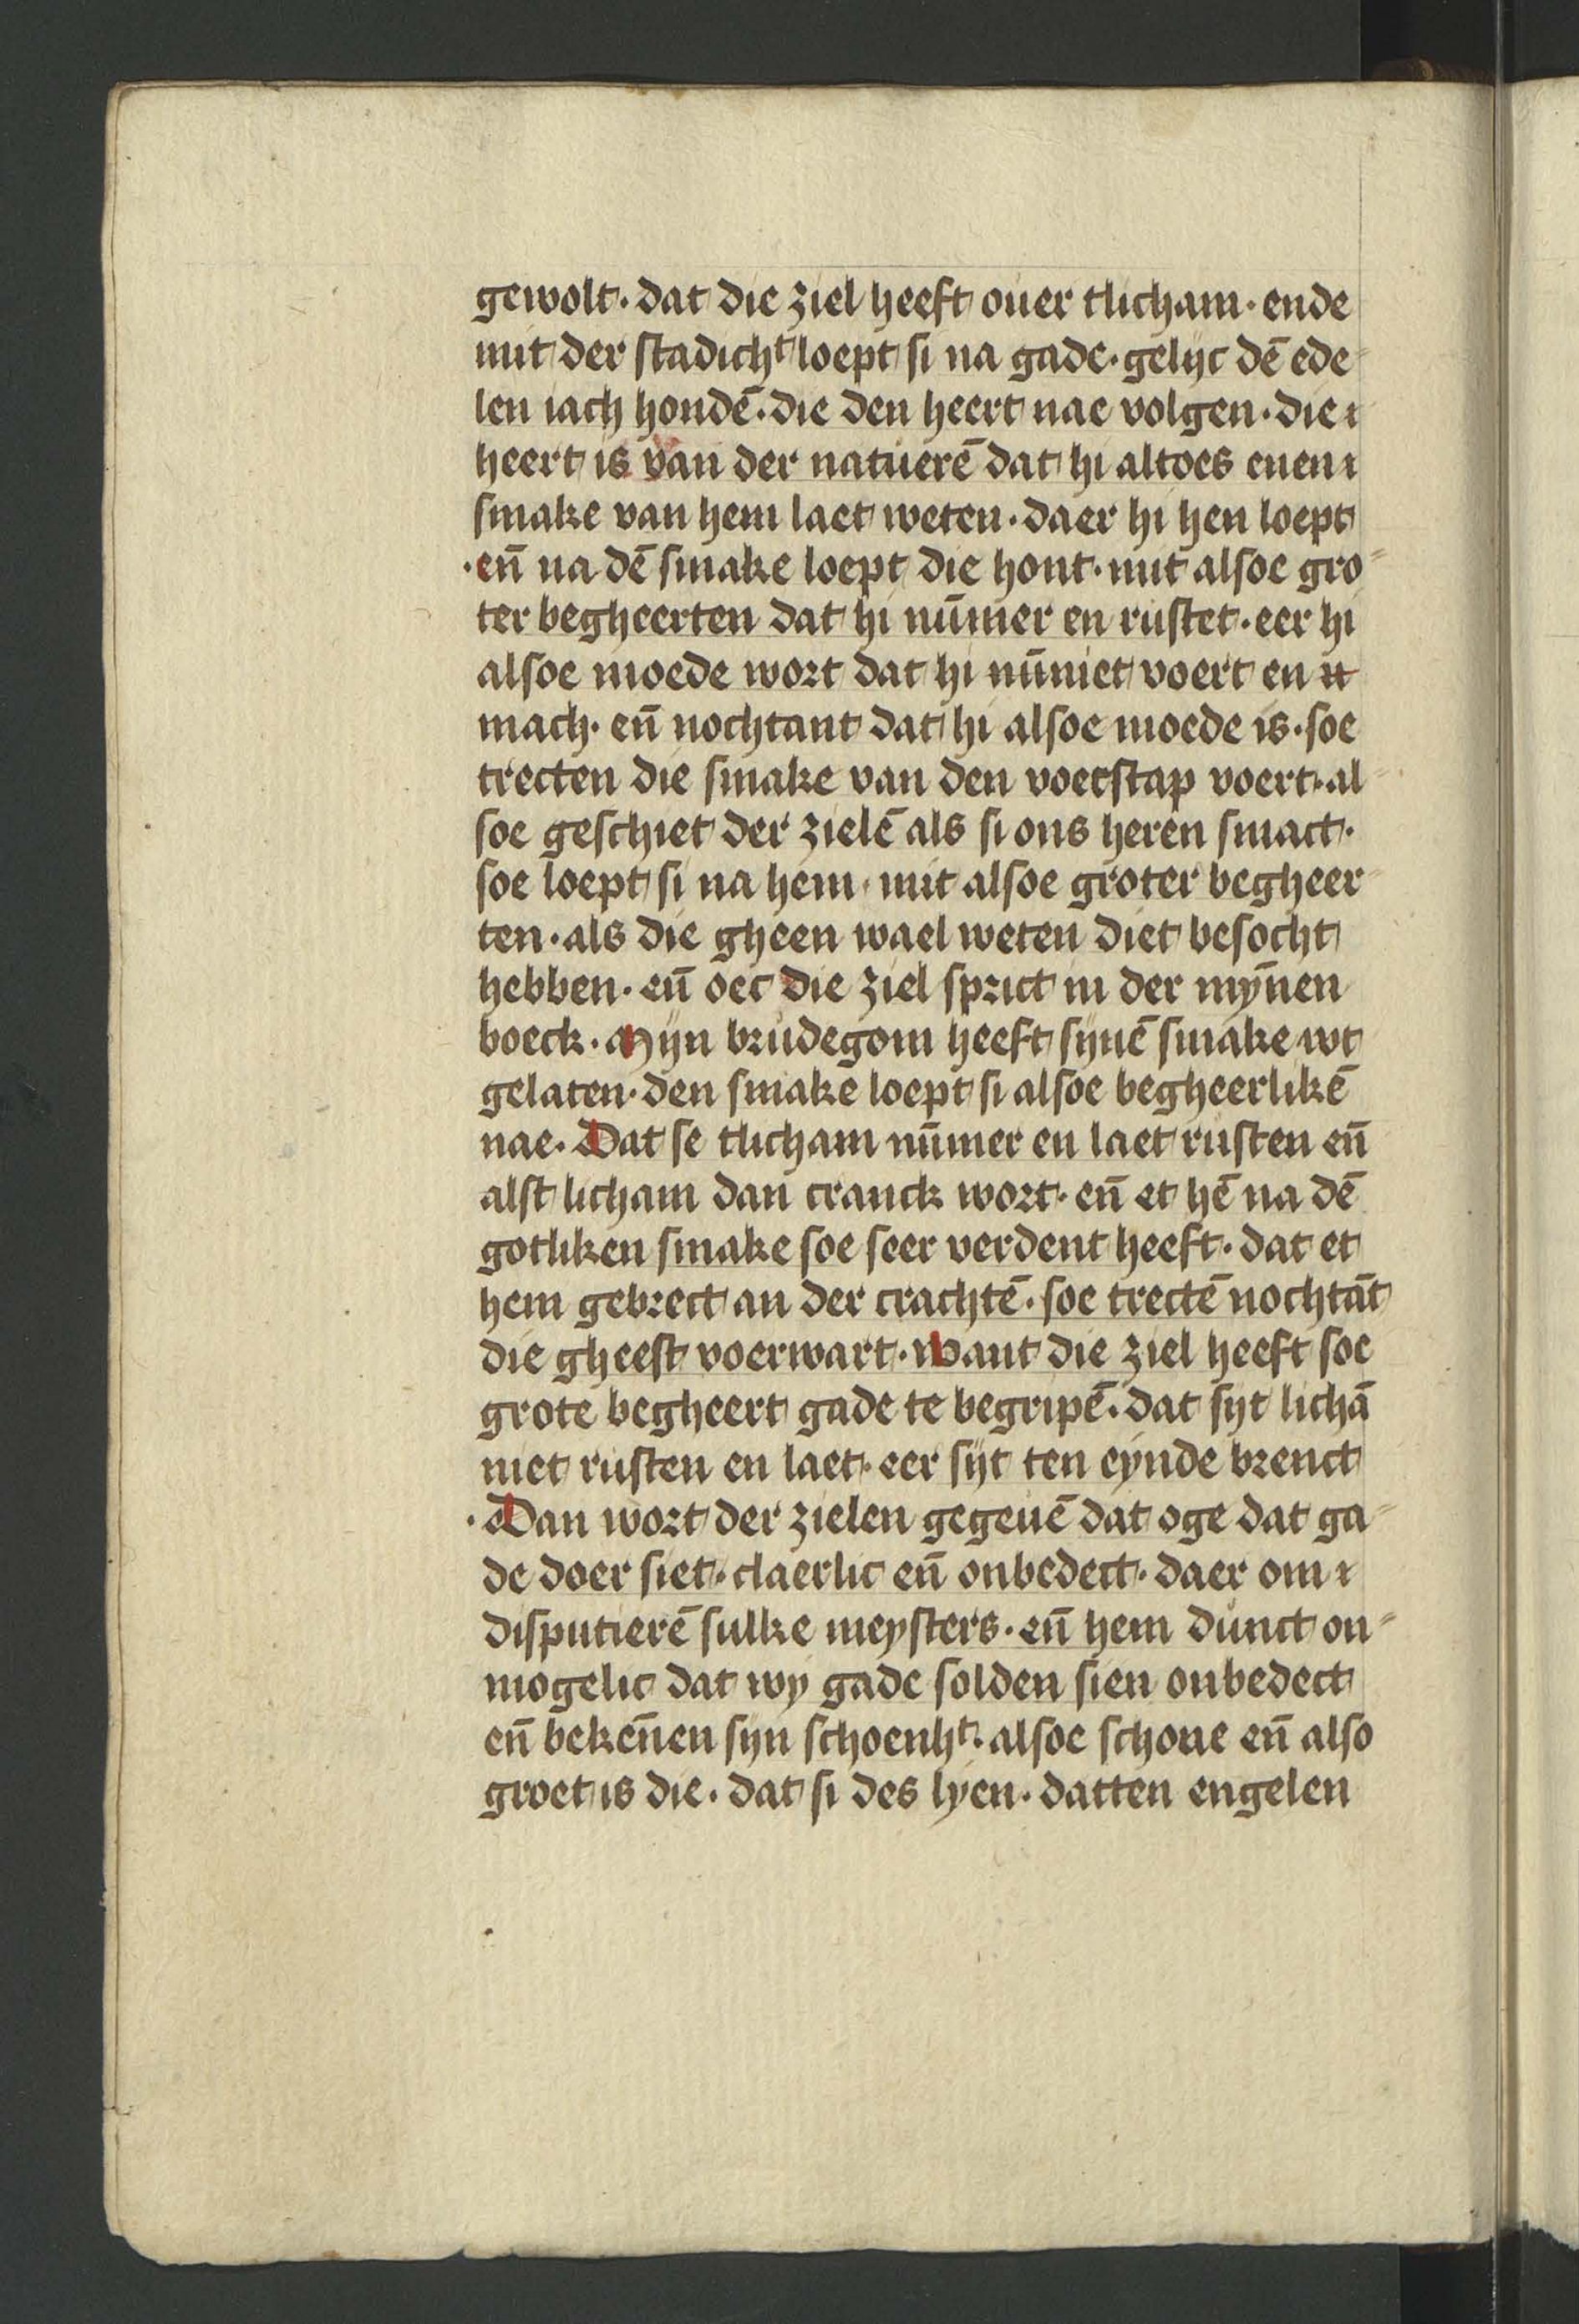 gewolt. dat die ziel heeft ouer tlicham. ende
mit der stadicht loept si na gade. gelijc dē ede
len iach hondē. die den heert nae volgen. die
heert is van der natuerē dat hi altoes enen
smake van hem laet weten. daer hi hen loept
.en̄ na dē smake loept die hont. mit alsoe gro
ter begheerten dat hi nūmer en rustet. eer hi
alsoe moede wort dat hi nūmet voert en
mach. en̄ nochtant dat hi alsoe moede is. soe
trecten die smake van den voetstap voert. al
soe geschiet der zielē als si ons heren smact.
soe loept si na hem. mit alsoe groter begheer
ten. als die gheen wael weten diet besocht
hebben. en̄ oec die ziel sprict in der mȳnen
boeck. Mijn brudegom heeft sijnē smake wt
gelaten. den smake loept si alsoe begheerlikē
nae. Dat se tlicham nūmer en laet rusten en̄
alst licham dan cranck wort. en̄ et hē na dē
gotliken smake soe seer verdent heeft. dat et
hem gebrect an der crachtē. soe trectē nochtāt
die gheest voerwart. Want die ziel heeft soe
grote begheert gade te begripē. dat sijt lichā
niet rusten en laet. eer sijt ten eynde brenct
.Dan wort der zielen gegeuē dat oge dat ga
de doer siet. claerlic en̄ onbedect. daer om
disputierē sulke meysters. en̄ hem dunct on
mogelic dat wy gade solden sien onbedect
en̄ beken̄en sijn schoenht. alsoe schone en̄ also
groet is die. dat si des lyen. datten engelen